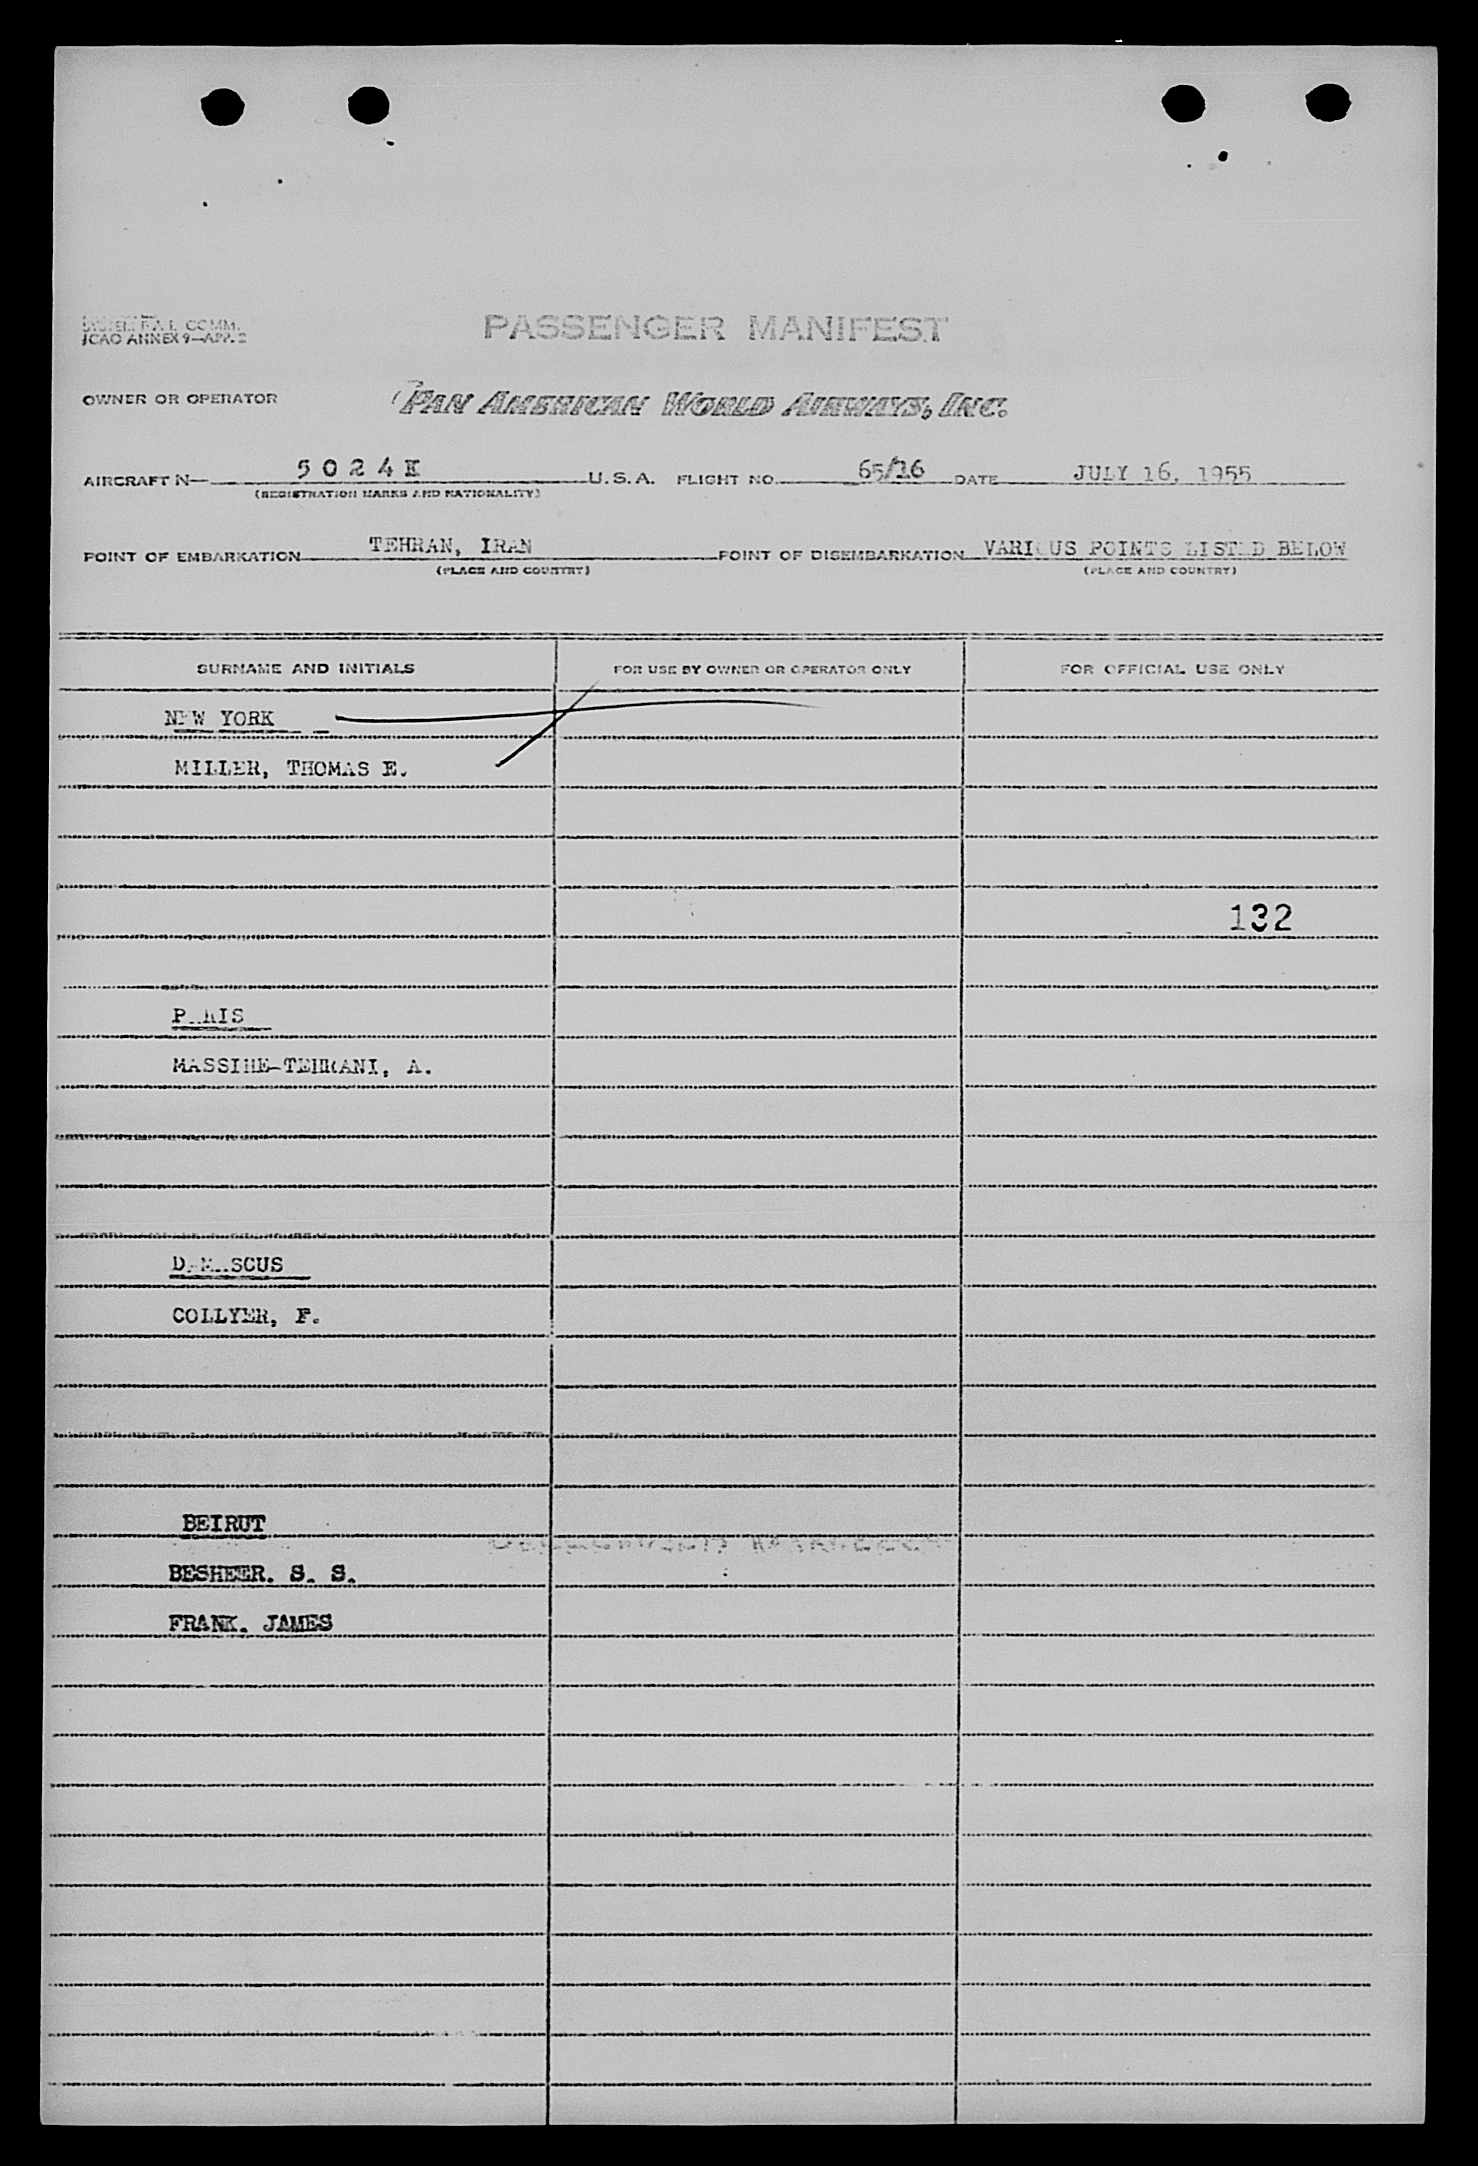 SYSTEM FAL COMM.
ICAO ANNEX 9—APP. 2
PASSENGER MANIFEST
OWNER OR OPERATOR PAN AMERICAN WORLD AIRWAYS, INC.
AIRCRAFT N— 5 0 2 4 K U. S. A. FLIGHT NO. 65/16 DATE JULY 16, 1955
(REGISTRATION MARKS AND NATIONALITY)
POINT OF EMBARKATION TEHRAN, IRAN POINT OF DISEMBARKATION VARIOUS POINTS LISTED BELOW
(PLACE AND COUNTRY) (PLACE AND COUNTRY)
SURNAME AND INITIALS FOR USE BY OWNER OR OPERATOR ONLY FOR OFFICIAL USE ONLY
NEW YORK
MILLER, THOMAS E.
132
PARIS
MASSIHE-TEHRANI, A.
DAMASCUS
COLLYER, F.
BEIRUT
BESHEER. S. S.
FRANK. JAMES